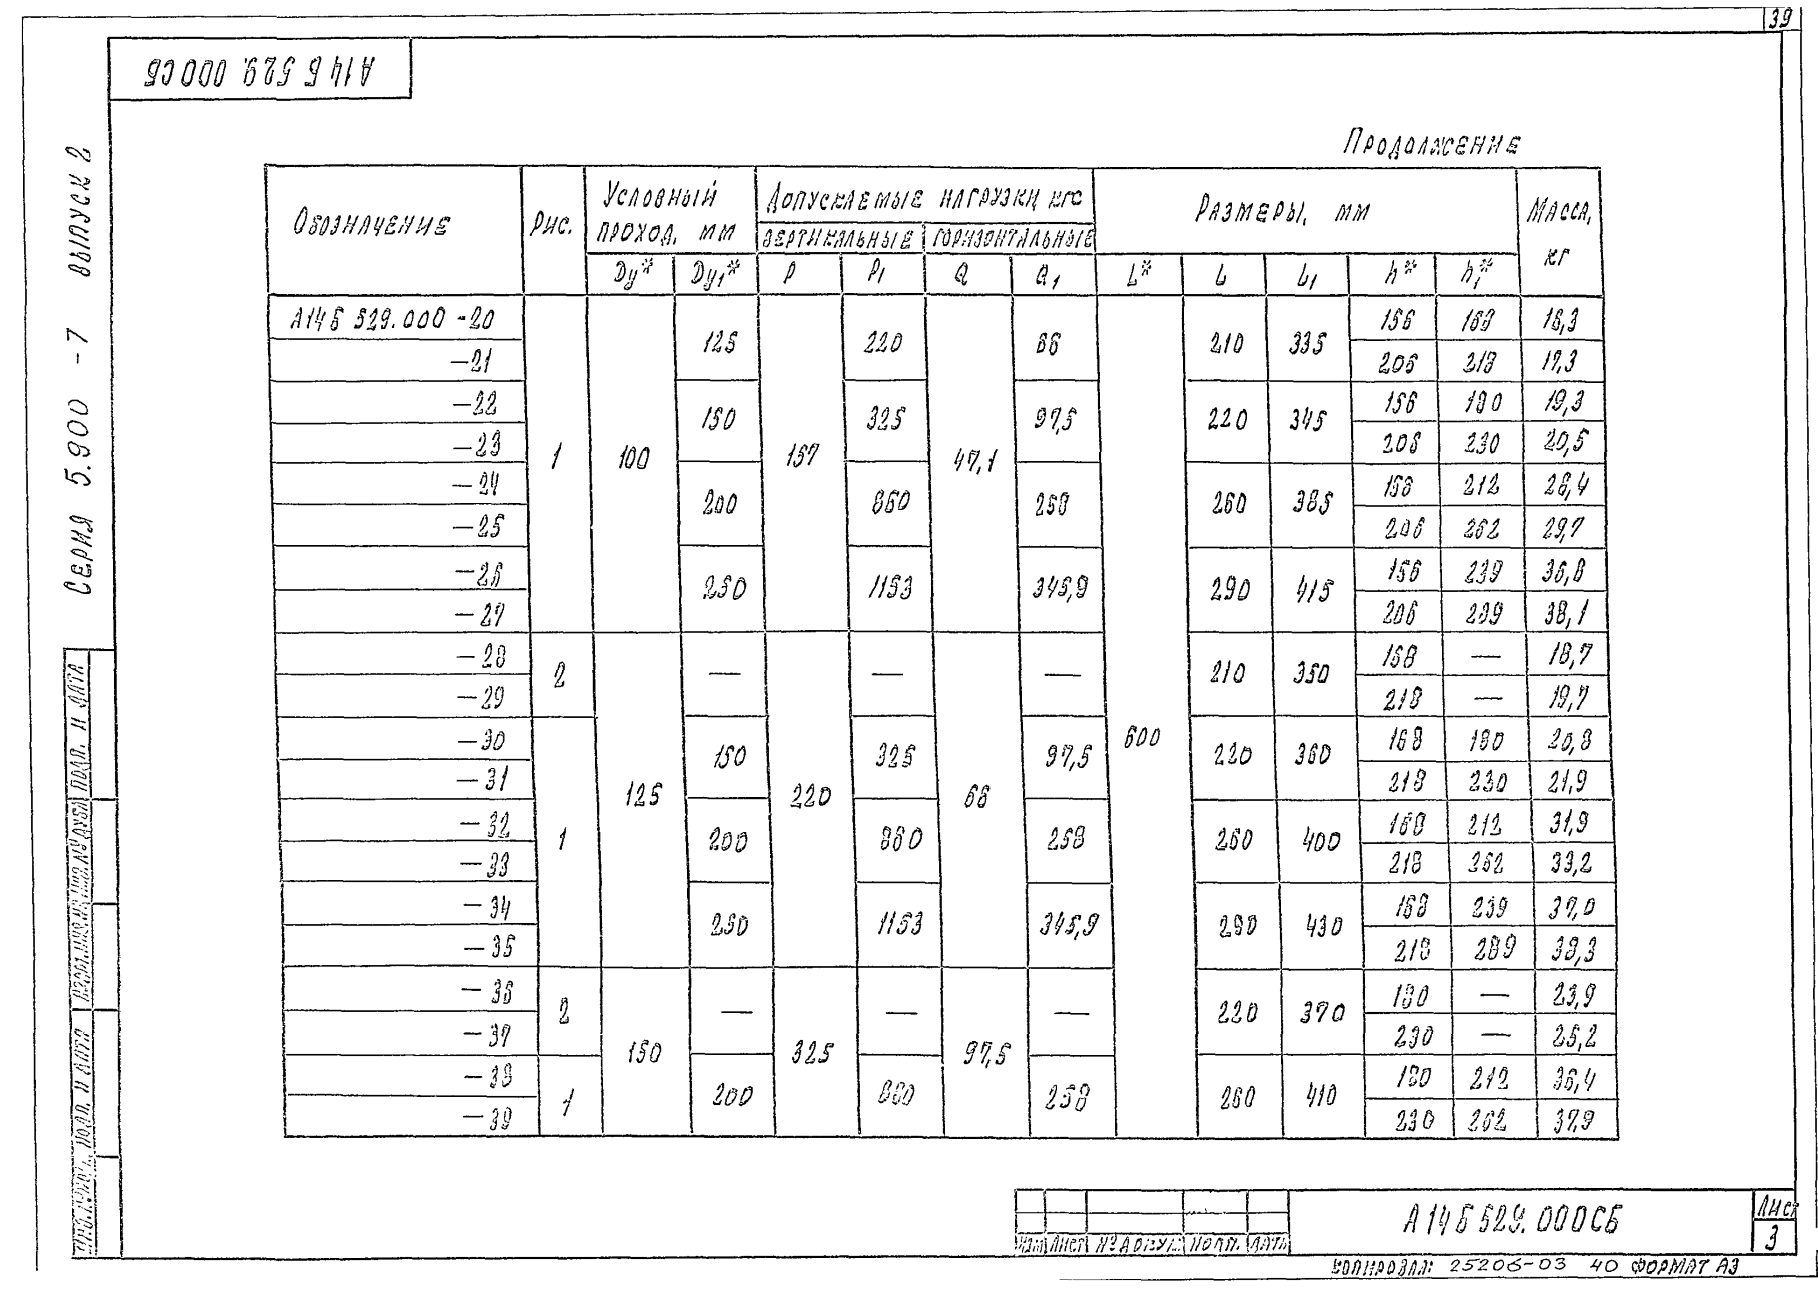 39
А14Б 529.000 СБ
Серия 5.900-7 выпуск 2
Продолжение
Обозначение Рис. Условный проход, мм Допускаемые нагрузки, кгс Размеры, мм Масса, кг
вертикальные горизонтальные
Dy* Dy1* P P1 Q Q1 L* L L1 h* h1*
А14Б 529.000 -20 1 100 125 157 220 47,1 66 600 210 335 156 168 16,3
-21 206 218 17,3
-22 150 325 97,5 220 345 156 180 19,3
-23 206 230 20,5
-24 200 860 258 260 385 156 212 28,4
-25 206 262 29,7
-26 250 1153 345,9 290 415 156 239 36,8
-27 206 289 38,1
-28 2 125 — 220 — 66 — 210 350 168 — 18,7
-29 218 — 19,7
-30 1 150 325 97,5 220 360 168 180 20,8
-31 218 230 21,9
-32 200 860 258 260 400 168 212 31,9
-33 218 262 33,2
-34 250 1153 345,9 290 430 168 239 37,0
-35 218 289 38,3
-36 2 150 — 325 — 97,5 — 220 370 180 — 23,9
-37 230 — 25,2
-38 1 200 860 258 260 410 180 212 36,4
-39 230 262 37,9
Подп. и дата
Подп. и дата
Изм Лист № докум. Подп. Дата
А14Б 529.000СБ
Лист
3
Копировал: 25206-03 40 Формат А3